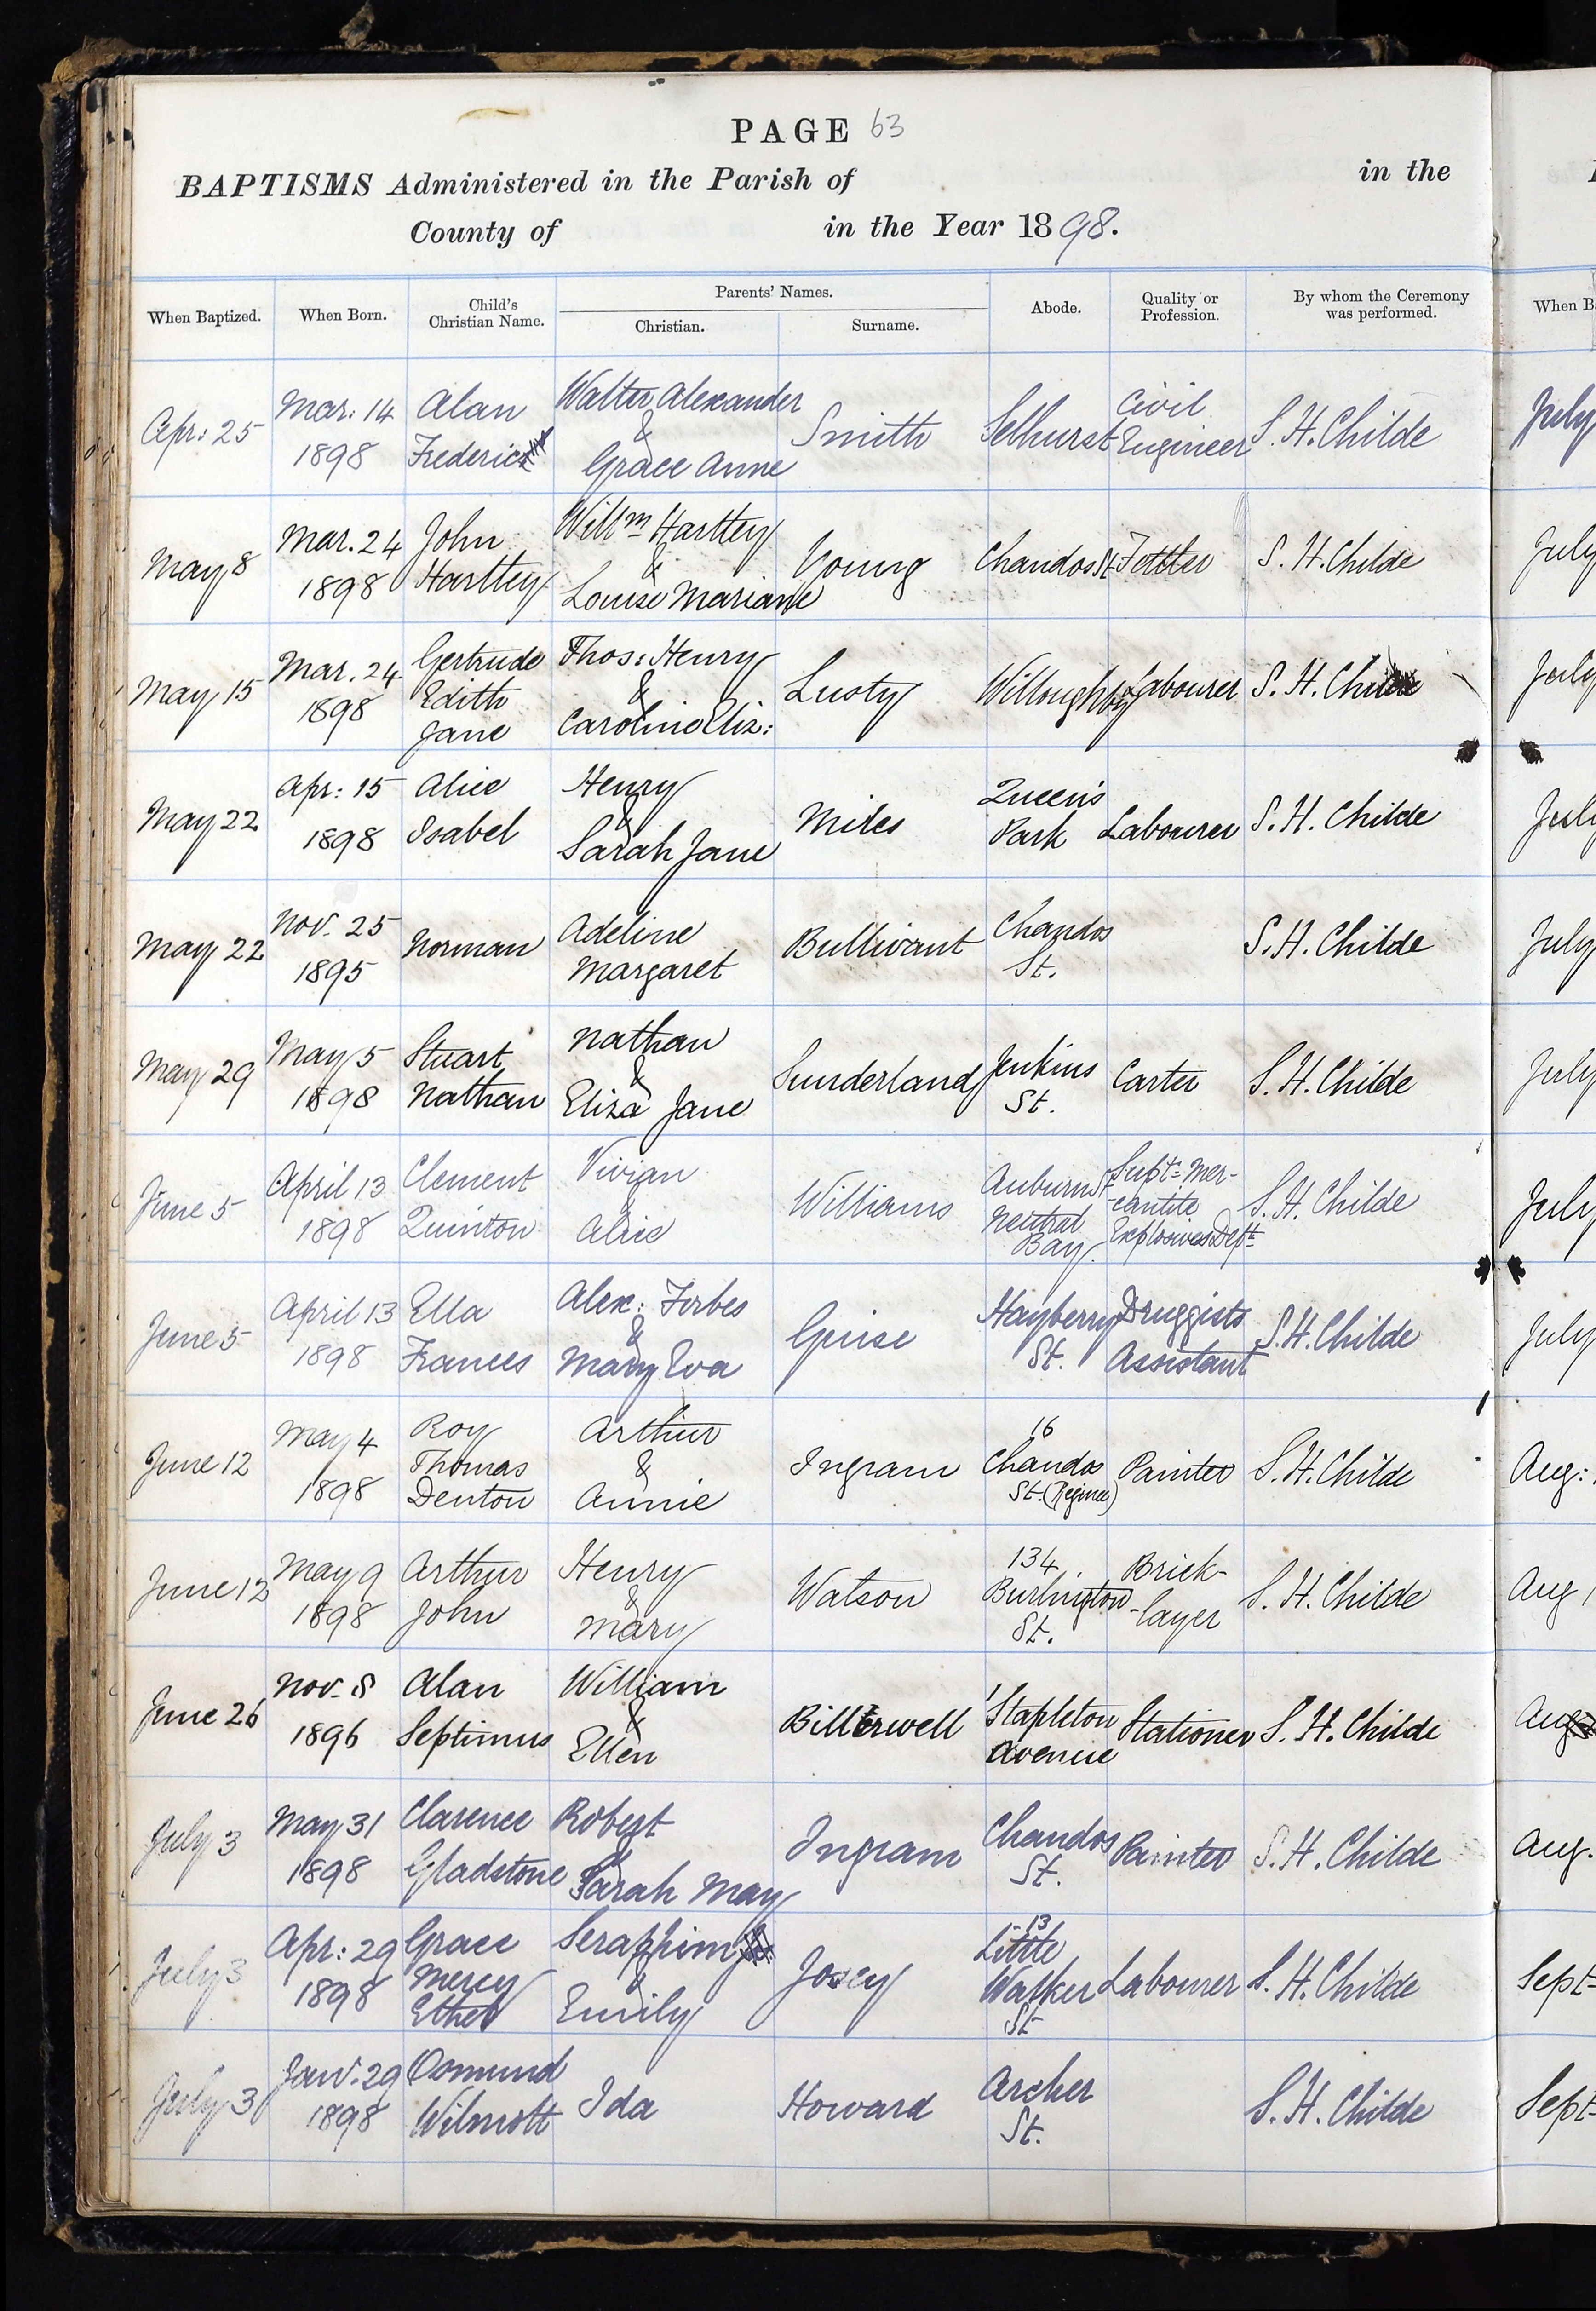 PAGE 63
BAPTISMS Administered in the Parish of in the
County of in the Year 1898.
When Baptized. When Born. Child's Christian Name. Parents' Names. Christian. Surname. Abode. Quality or Profession. By whom the Ceremony was performed.
Apr: 25 Mar: 14 1898 Alan Frederick Walter Alexander & Grace Anne Smith Selhurst Civil Engineer S. H. Childe
May 8 Mar. 24 1898 John Hartley Willm Hartley & Louise Mariane Young Chandos St Fettler S. H. Childe
May 15 Mar. 24 1898 Gertrude Edith Jane Thos: Henry & Caroline Eliz: Lusty Willoughby Labourer S. H. Childe
May 22 Apr: 15 1898 Alice Isabel Henry & Sarah Jane Miles Queen's Park Labourer S. H. Childe
May 22 Nov. 25 1895 Norman Adeline Margaret Bullivant Chandos St. S. H. Childe
May 29 May 5 1898 Stuart Nathan Nathan & Eliza Jane Sunderland Jenkins St. Carter S. H. Childe
June 5 April 13 1898 Clement Quinton Vivian & Alice Williams Auburn St Neutral Bay. Supt. Mer-cantile Explosives Dept. S. H. Childe
June 5 April 13 1898 Ella Frances Alex: Forbes & Mary Eva Guise Hayberry St. Druggists Assistant S. H. Childe
June 12 May 4 1898 Roy Thomas Denton Arthur & Annie Ingram 16 Chandos St. Painter S. H. Childe
June 12 May 9 1898 Arthur John Henry & Mary Watson 134 Burlington St. Brick-layer S. H. Childe
June 26 Nov. 8 1896 Alan Septimus William & Ellen Billerwell Stapleton Avenue Stationer S. H. Childe
July 3 May 31 1898 Clarence Gladstone Robert & Sarah May Ingram Chandos St. Painter S. H. Childe
July 3 Apr: 29 1898 Grace Mercy Ethel Seraphim & Emily Josey 13 Little Walker St Labourer S. H. Childe
July 3 Jan. 29 1898 Osmund Wilmott Ida Howard Archer St. S. H. Childe
When B
July
July
July
July
July
July
July
July
Aug:
Aug
Aug
Aug.
Sept
Sept